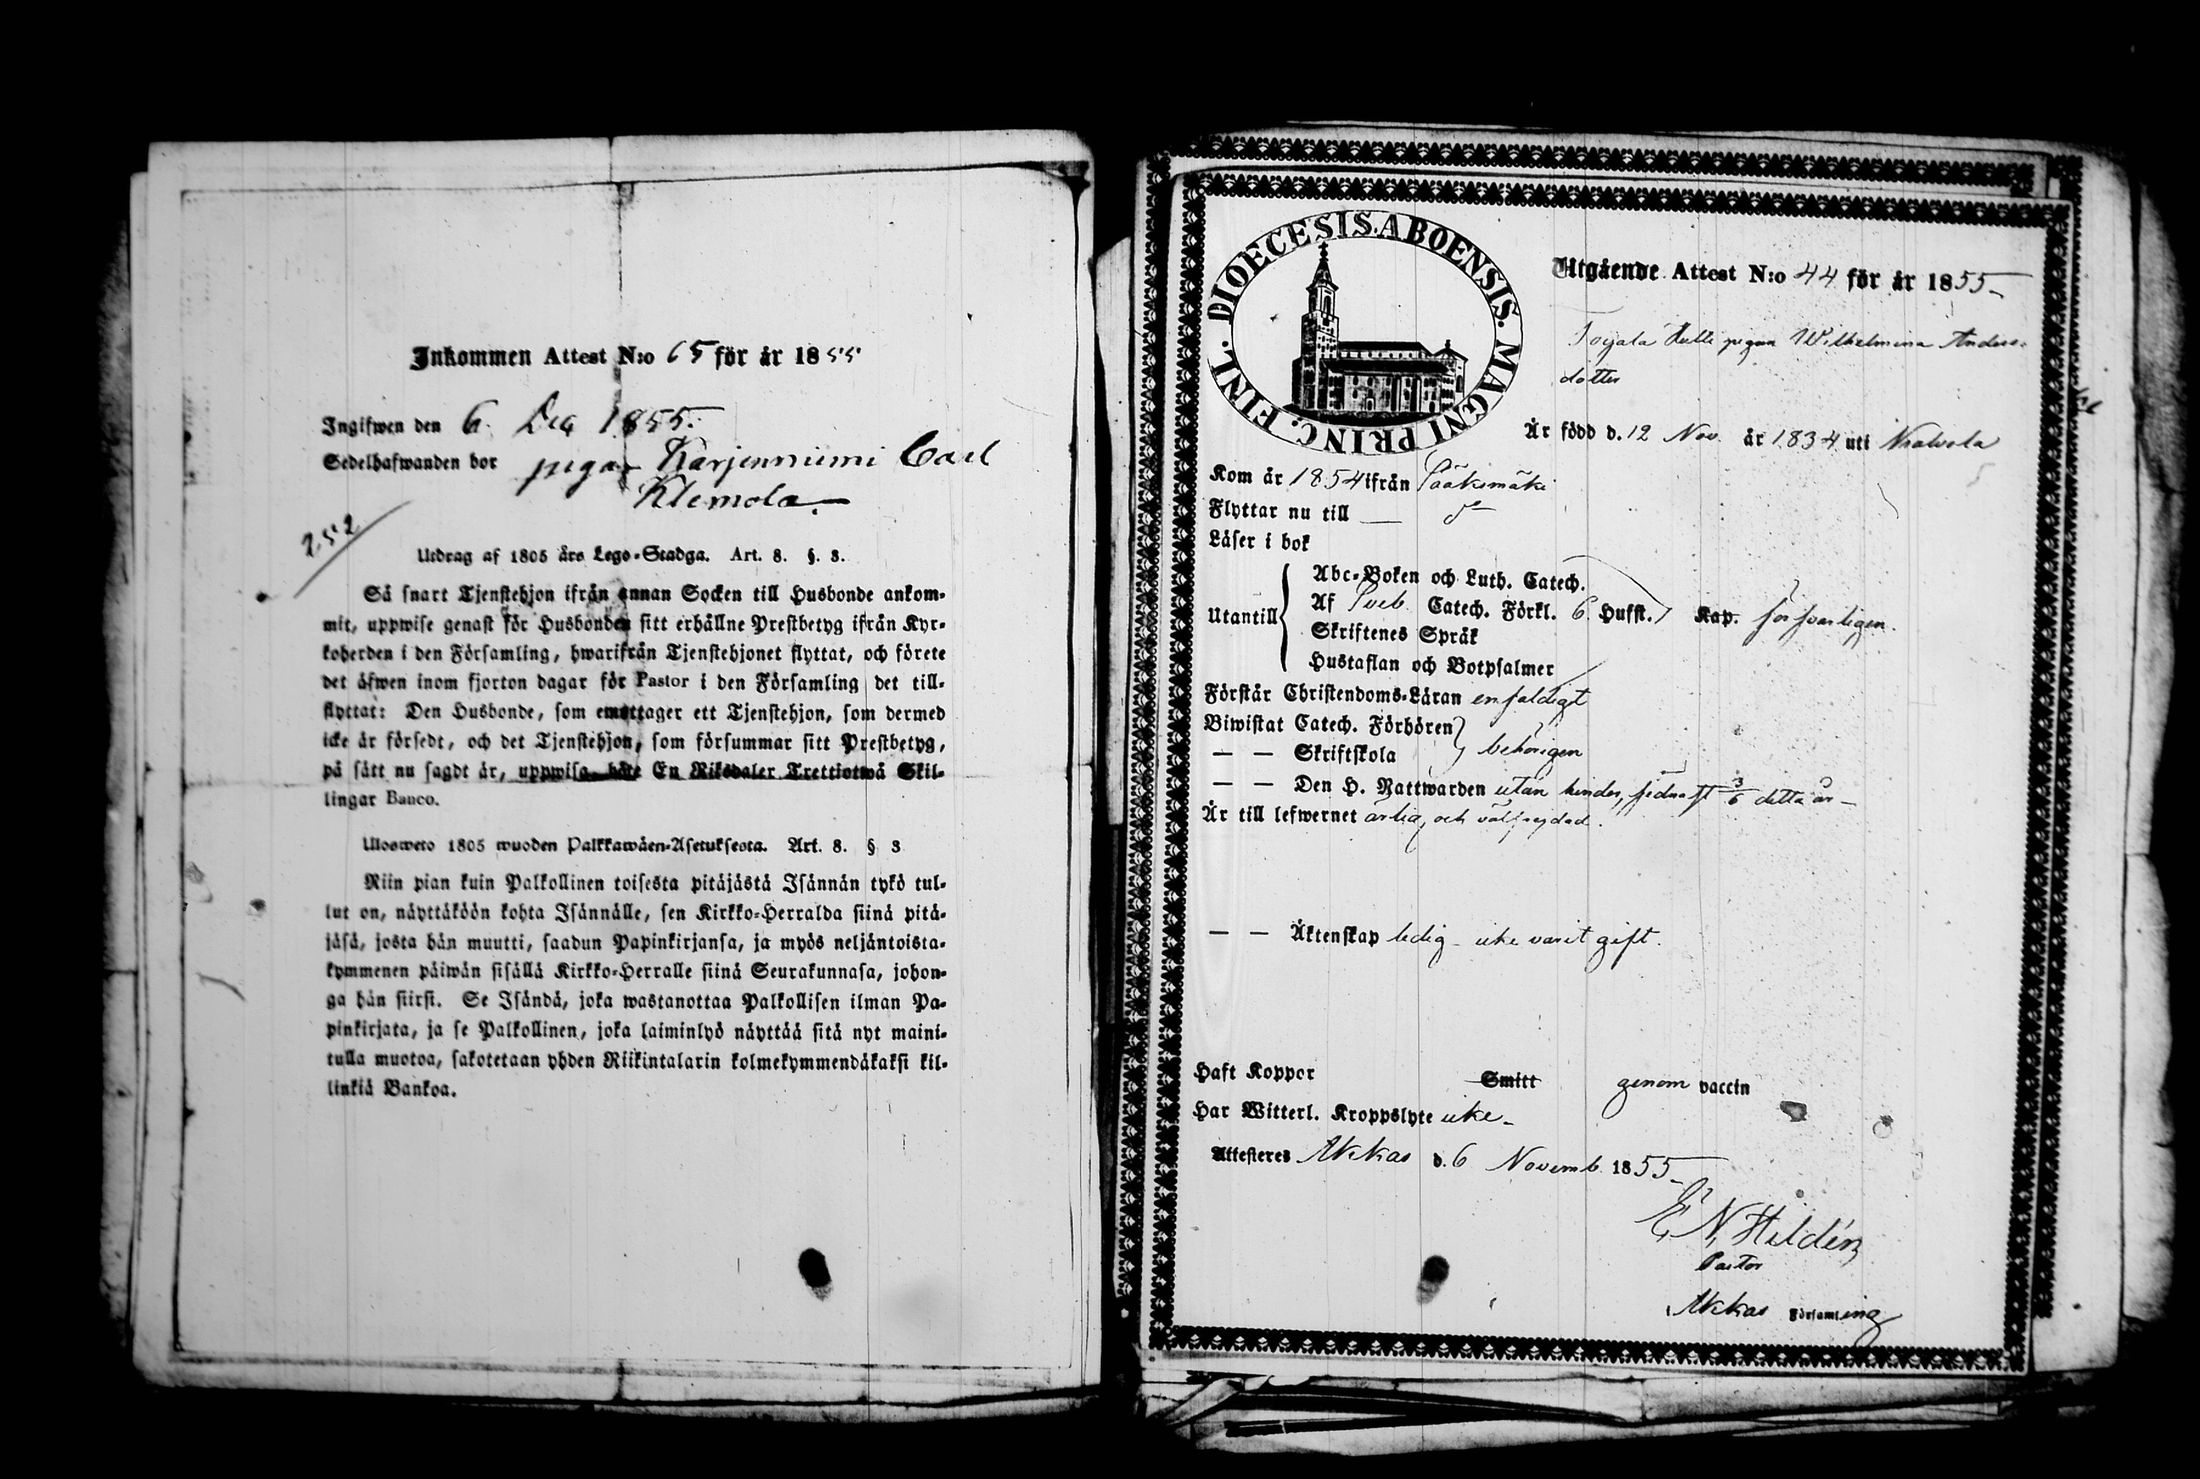 Inkommen Attest N:o 65 för år 1855
Ingifwen den 6. Dec 1855.
Sedelhafwanden bor piga Karjenniemi Carl
Klemola.
252
Utdrag af 1805 års Lego-Stadga. Art. 8. §. 3.
Så snart Tjenstehjon ifrån annan Socken till Husbonde ankom-
mit, uppwise genast för Husbonden sitt erhållne Prestbetyg ifrån Kyr-
koherden i den Församling, hwarifrån Tjenstehjonet flyttat, och förete
det äfwen inom fjorton dagar för Pastor i den Församling det till-
flyttat: Den Husbonde, som emottager ett Tjenstehjon, som dermed
icke är försedt, och det Tjenstehjon, som försummar sitt Prestbetyg,
på sätt nu sagdt är, uppwisa, böte En Riksdaler Trettiotwå Skil-
lingar Banco.
Ulosweto 1805 wuoden Palkkawäen-Asetuksesta. Art. 8. § 3
Niin pian kuin Palkollinen toisesta pitäjästä Isännän tykö tul-
lut on, näyttäköön kohta Isännälle, sen Kirkko-Herralda siinä pitä-
jäsä, josta hän muutti, saadun Papinkirjansa, ja myös neljäntoista-
kymmenen päiwän sisällä Kirkko-Herralle siinä Seurakunnasa, johon-
ga hän siirsi. Se Isändä, joka wastanottaa Palkollisen ilman Pa-
pinkirjata, ja se Palkollinen, joka laiminlyö näyttää sitä nyt maini-
tulla muotoa, sakotetaan yhden Riikintalarin kolmekymmendäkaksi kil-
linkiä Bankoa.
DIOECESIS.ABOENSIS. MAGNI PRINC. FINL.
Utgående Attest N:o 44 för år 1855
Toijala pigan Wilhelmina Anders-
dotter
Är född d. 12 Nov. år 1834 uti Kalvola
Kom år 1854 ifrån Sääksmäki
Flyttar nu till —
Läser i bok
Abc-Boken och Luth. Catech.
Utantill Af Sveb. Catech. Förkl. 6 Hufst. Kap. försvarligen.
Skriftenes Språk
Hustaflan och Botpsalmer
Förstår Christendoms-Läran enfaldigt
Biwistat Catech. Förhören
— — Skriftskola behörigen
— — Den H. Nattwarden utan hinder, sednast 3/6 detta år
Är till lefwernet ärlig och välfrejdad.
— — Äktenskap ledig - icke varit gift.
Haft Koppor Smitt genom vaccin
Har Witterl. Kroppslyte icke
Attesteres Akkas d. 6 Novemb. 1855
E. N. Hildén
Pastor
i Akkas Församling